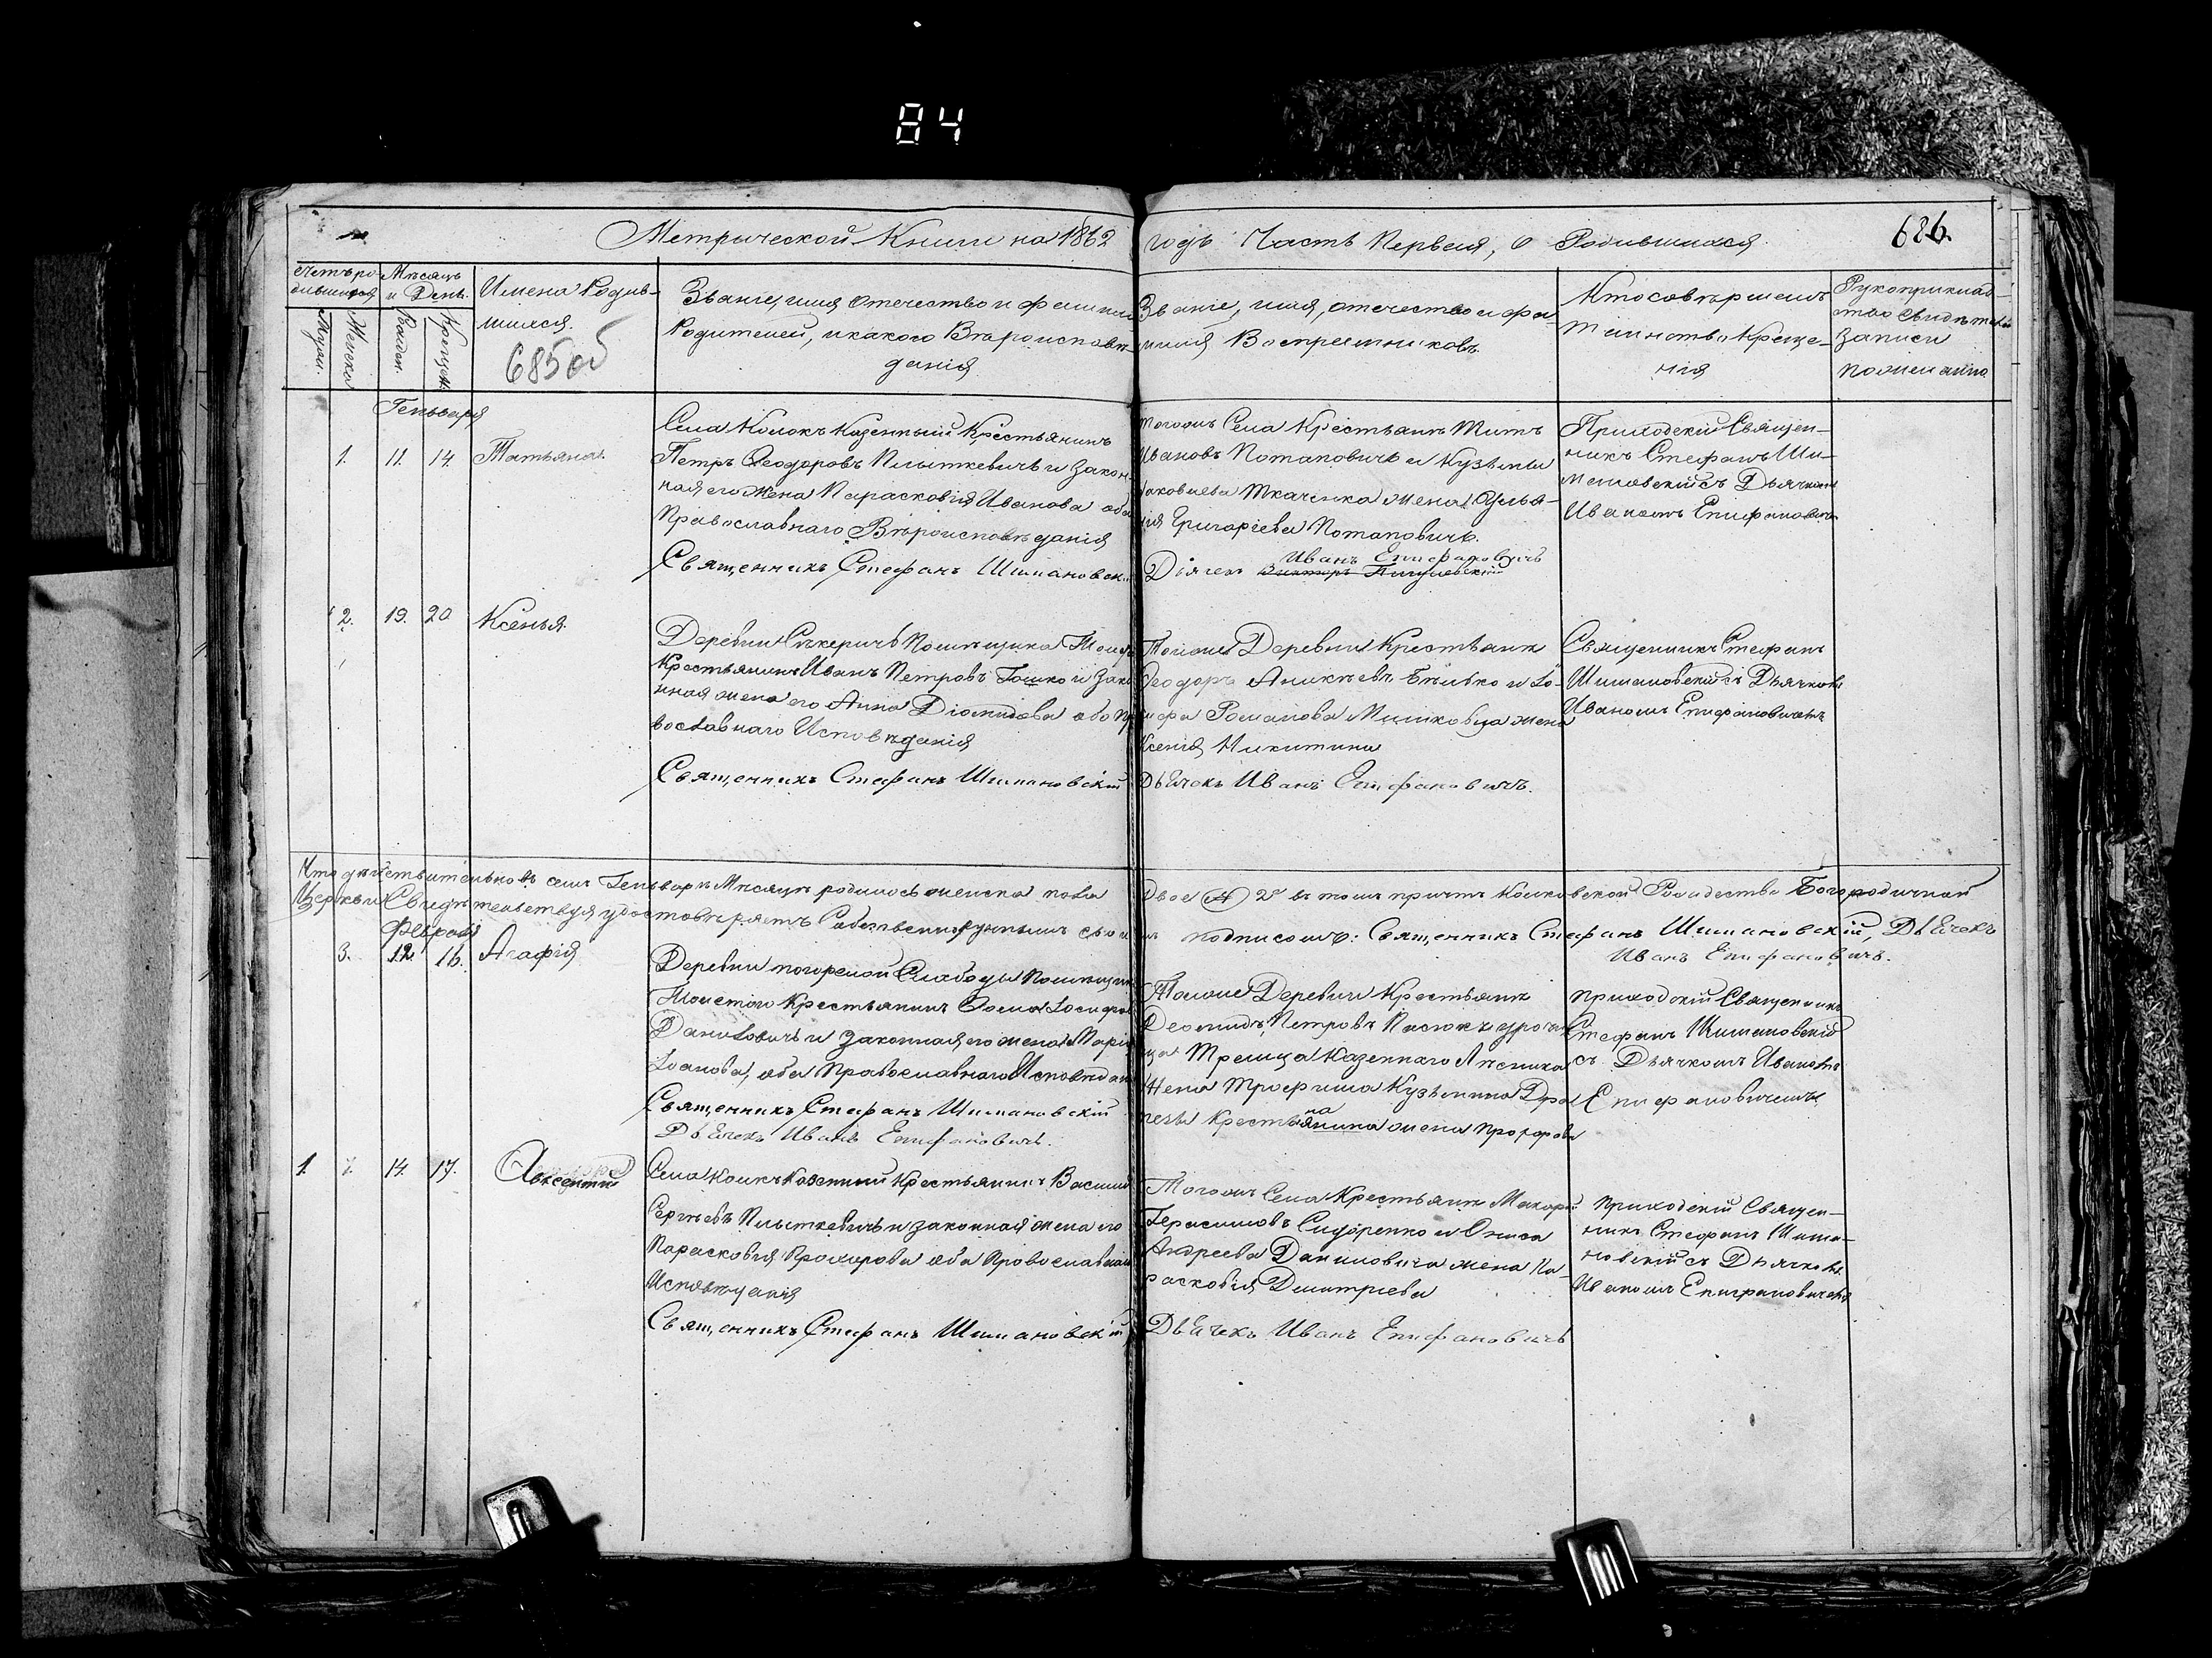 84
Метрической Книги на 1862 годъ Часть Первая, о Родившихся
686.
Счетъ родившихся
Мужеск.
Женска
Мѣсяцъ и День.
Рожден.
Крещен.
Имена Родив-
шихся.
685об
Званіе, имя отечество и фамилія
Родителей, и какого Вѣроисповѣ-
данія
Званіе, имя, отечество и фа-
милія Воспріемниковъ
Кто совершалъ
таинство Креще-
нія
Рукоприклад-
ство свидѣтелей
записи
по желанію.
Генваря
1. 11. 14. Татьяна.
Села Колокъ Казенный Крестьянинъ
Петръ Ѳеодоровъ Плыткевичъ и закон-
ная его жена Парасковія Иванова оба
Православнаго Вѣроисповѣданія
Священникъ Стефанъ Шимановскі
тогожъ Села Крестьянъ Титъ
Ивановъ Потаповичъ и Кузьмы
Яковлева Ткаченка жена Улья-
нія Григоріева Потаповичъ.
Иванъ Епифановичъ
Діячекъ
Приходскій Священ-
никъ Стефанъ Ши-
мановскій съ Дьячкомъ
Иваномъ Епифанович
2. 19. 20 Ксенья.
Деревни Помѣщика
Крестьянинъ Иванъ Петровъ Гошко и зако
нная жена его Анна Діомидова оба Пра
вославнаго Исповѣданія
Священникъ Стефанъ Шимановскій
Тойже Деревни Крестьянъ
Ѳеодоръ Аникѣевъ Бѣлько и Іо-
сифа Романова жена
Ксенія Никитина
Дьячекъ Иванъ Епифановичъ.
Священникъ Стефанъ
Шимановскій съ Дьячкомъ
Иваномъ Епифановичемъ
Что дѣйствительно въ семъ Генварѣ Мѣсяцѣ родилось женска пола Двое 2 въ томъ причтъ Рождество Богородичной
Церкви Свидѣтельствуя удостовѣряетъ Собственноручнымъ свои мъ подписомъ: Священникъ Стефанъ Шимановскій, Дьячекъ
Иванъ Епифановичъ.
Февраля
3. 12 16. Агафія
Деревни погорелой Слободы Помѣщика
Крестьянинъ Ѳома Іосифов
Даниловичъ и законная его жена Марія
Іоанова, оба Православнаго Исповѣдан
Священникъ Стефанъ Шимановскій
Дьячекъ Иванъ Епифановичъ.
Тойже Деревни Крестьянъ
Деомидъ Петровъ Пасюкъ
Казеннаго Лѣсника
Жена Трофима Кузьмина
Крестьянина жена
приходскій Священникъ
Стефанъ Шимановскій
съ Дьячкомъ Иваномъ
Епифановичемъ
1. 14. 17. Авксентій
Села Колкъ Казенный Крестьянинъ Василій
Сергѣевъ Плыткевичъ и законная жена его
Парасковія Прохорова оба Православнаго
Исповѣданія
Священникъ Стефанъ Шимановскій
Тогожъ Села Крестьянъ Макарій
Герасимовъ Сидоренко и Ониса
Андреева Даниловича жена Па-
расковія Дмитріева
Дьячекъ Иванъ Епифановичъ
приходскій Священ-
никъ Стефанъ Шима-
новскій съ Дьячкомъ
Иваномъ Епифановичемъ